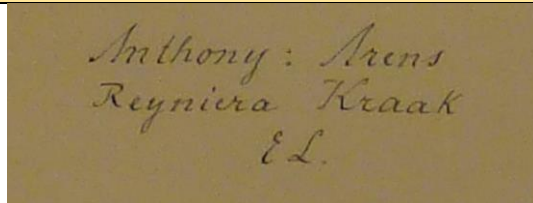 Anthony: Arens
Reyniera Kraak
E L.